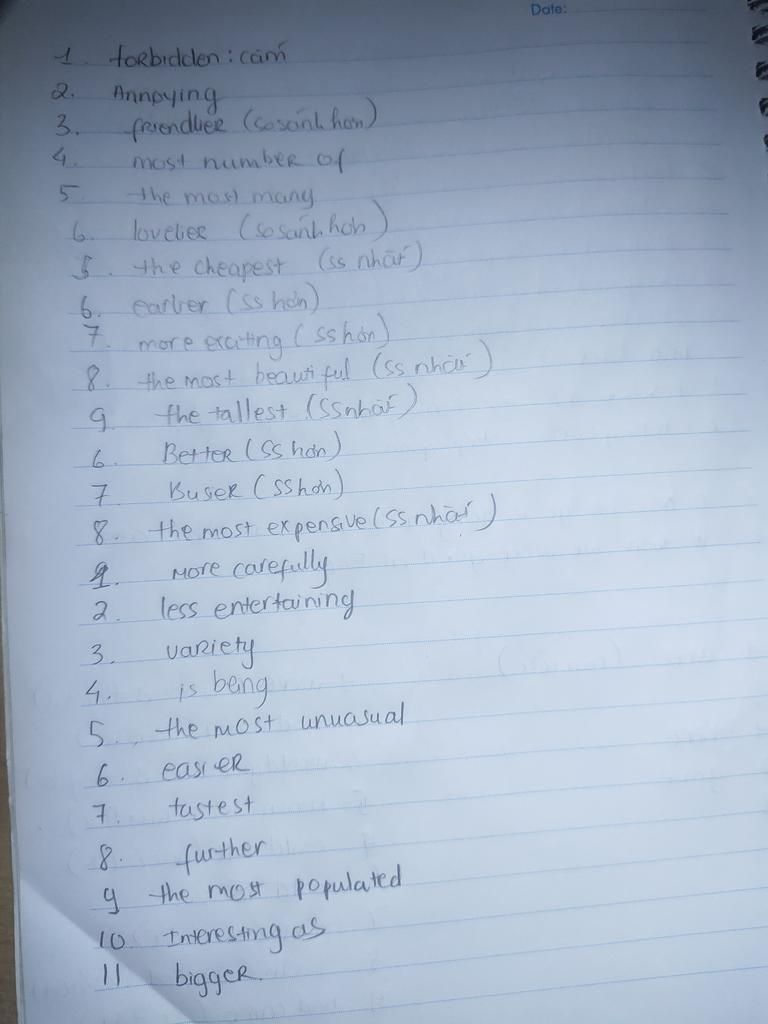 Date:
1. forbidden : cấm
2. Annoying
3. friendlier (so sánh hơn)
4. most number of
5 the most many
6. lovelier (so sánh hơn)
5. the cheapest (ss nhất)
6. earlier (ss hơn)
7. more exciting (ss hơn)
8. the most beautiful (ss nhất)
9 the tallest (ss nhất)
6. Better (ss hơn)
7 Buser (ss hơn)
8. the most expensive (ss nhất)
1. more carefully
2. less entertaining
3. variety
4. is being
5. the most unuasual
6. easier
7. tastest
8. further
9 the most populated
10 Interesting as
11 bigger.